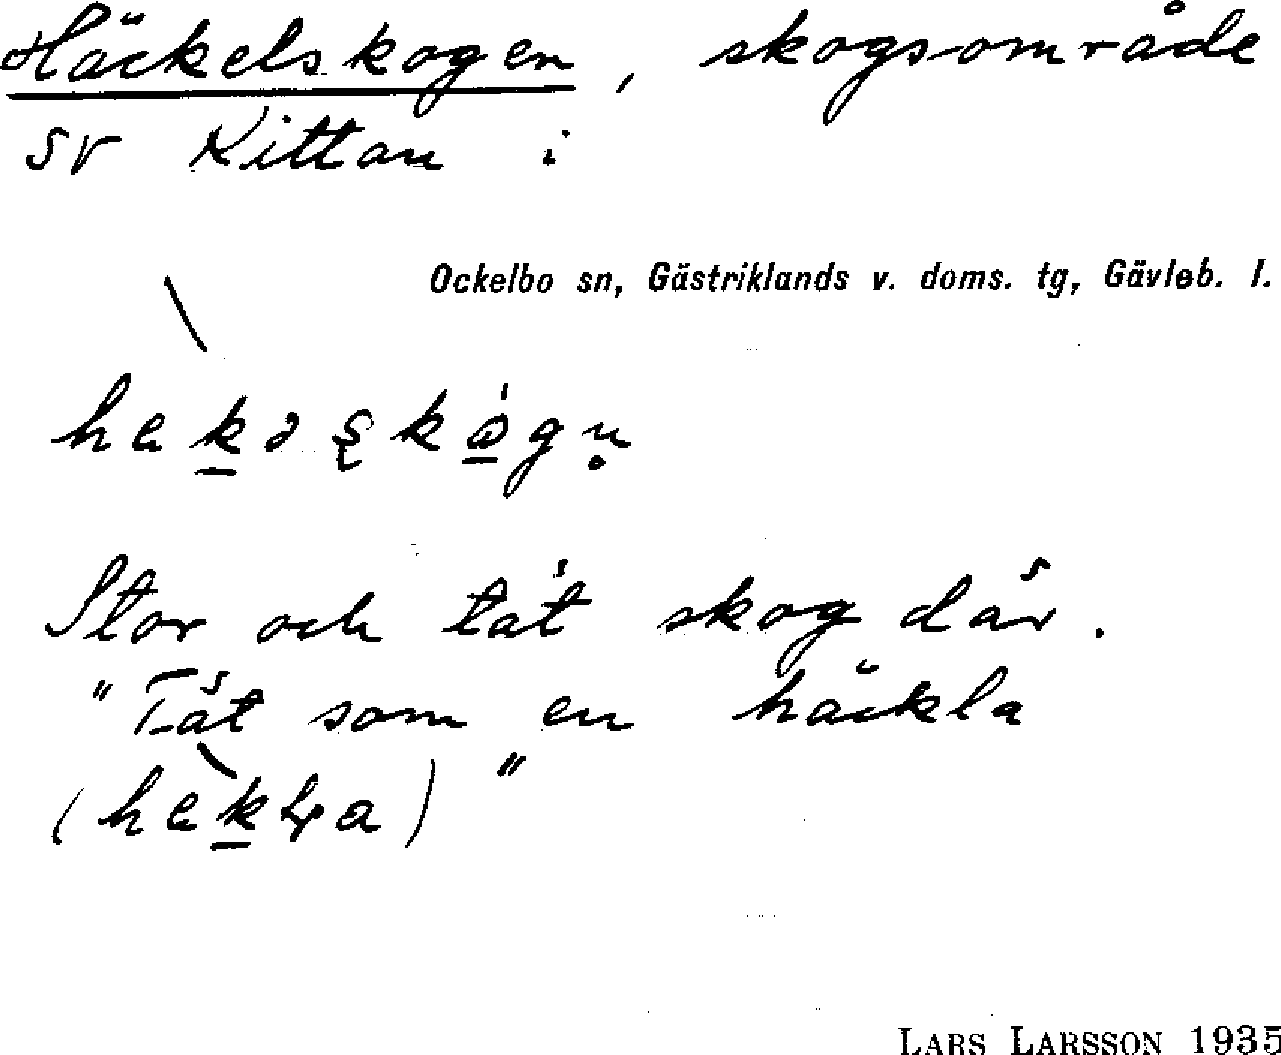 Häckelskogen, skogsområde
sv Kittan i
Ockelbo sn, Gästriklands v. doms. tg, Gävleb. l.
Stor och tät skog där.
"Tät som en häckla
LARS LARSSON 1935